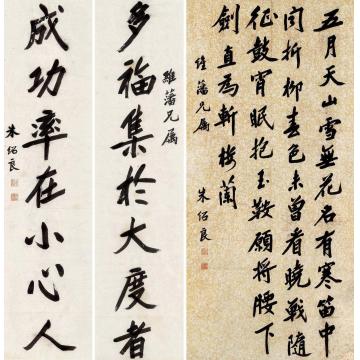 五月天山雪無花只有寒笛中
聞折柳春色未曾看曉戰隨
征鼓宵眠抱玉鞍願將腰下
劍直為斬樓蘭
維藩兄属
朱紹良
維藩兄属
多福集於大度者
成功率在小心人
朱紹良